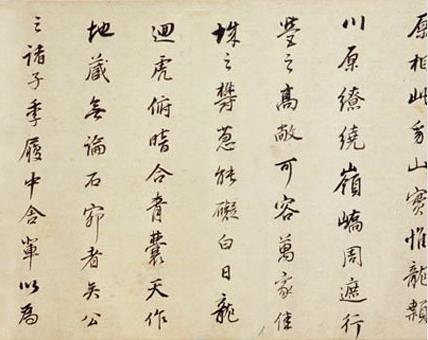 相此山實惟龍
川原繚繞嶺嶠周遮行
營之高敞可容萬家佳
城之欝蔥能礙白日龍
迴虎俯暗合青囊天作
地藏無論石槨者矣公
之諸子季履中舍輩以為